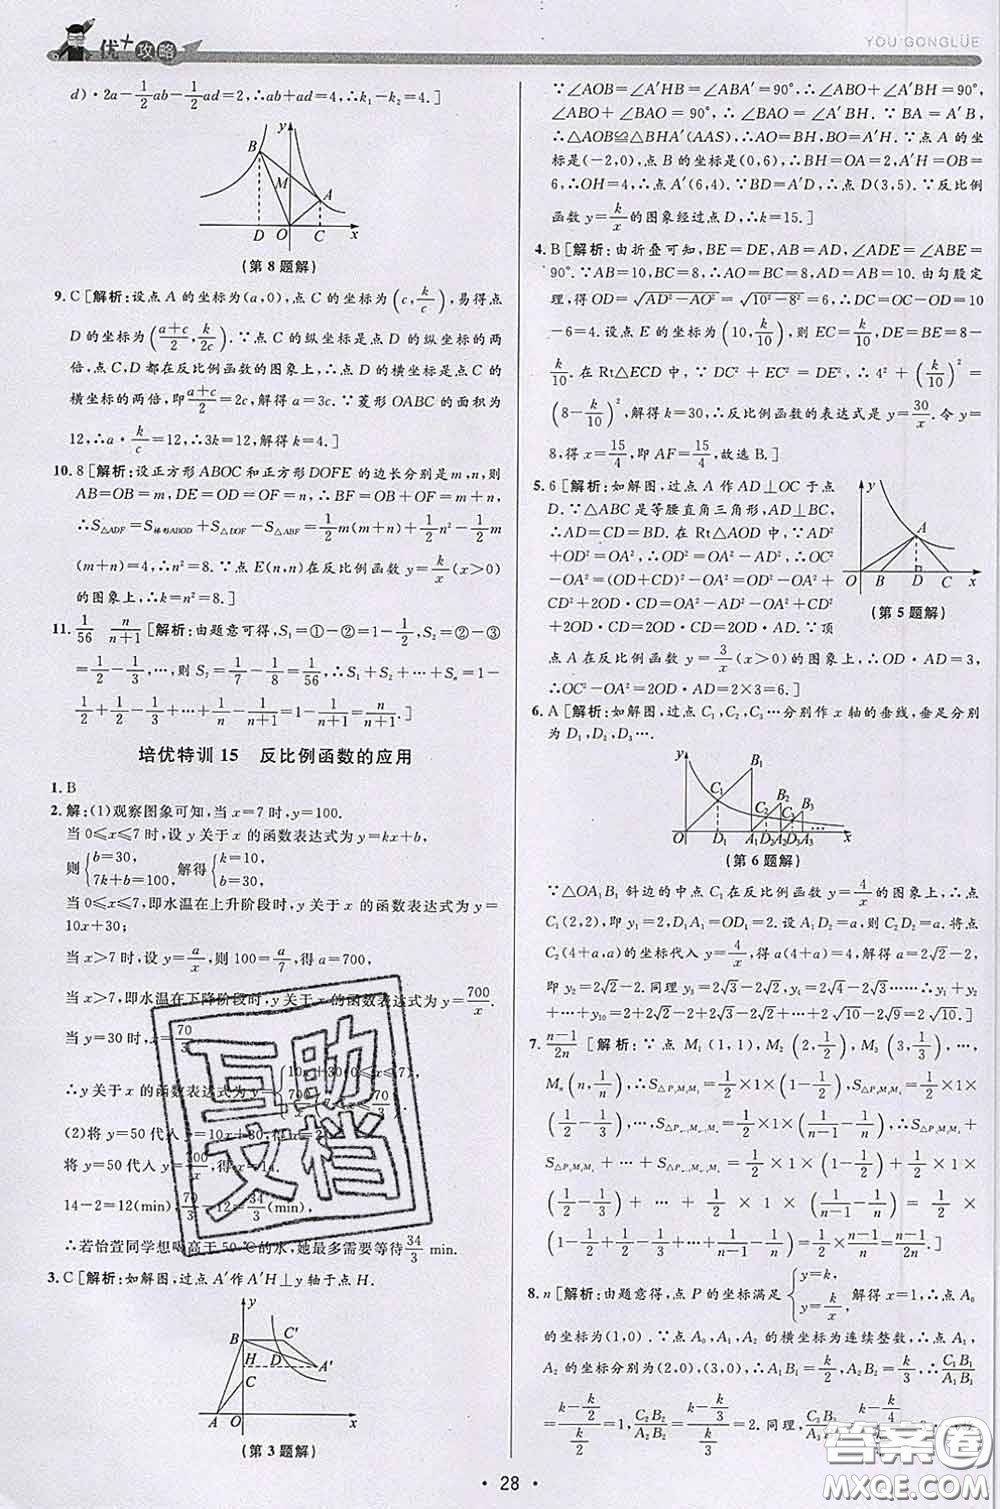 优+攻略
YOU GONGLÜE
d)·2a-1/2ab-1/2ad=2,∴ab+ad=4,∴k₁-k₂=4.]
y
B
M
A
D O C x
(第8题解)
9. C [解析:设点A的坐标为(a,0),点C的坐标为(c,k/c),易得
点D的坐标为((a+c)/2,k/2c).∵点C的纵坐标是点D的纵坐标的两
倍,点C,D都在反比例函数的图象上,∴点D的横坐标是点C的
横坐标的两倍,即(a+c)/2=2c,解得a=3c.∵菱形OABC的面积为
12,∴a·k/c=12,∴3k=12,解得k=4.]
10. 8 [解析:设正方形ABOC和正方形DOFE的边长分别是m,n,则
AB=OB=m,DE=OD=OF=n,∴BF=OB+OF=m+n,
∴S△ADF=S梯形ABOD+S△DOF-S△ABF=1/2m(m+n)+1/2n²-1/2m
(m+n)=4,∴n²=8.∵点E(n,n)在反比例函数y=k/x(x>0)
的图象上,∴k=n²=8.]
11. 1/56 n/(n+1) [解析:由题意可得,S₁=①-②=1-1/2,S₂=②-③
=1/2-1/3,…,则S₇=1/7-1/8=1/56,∴S₁+S₂+S₃+…+Sₙ=1-
1/2+1/2-1/3+…+1/n-1/(n+1)=1-1/(n+1)=n/(n+1).]
培优特训15 反比例函数的应用
1. B
2. 解:(1)观察图象可知,当x=7时,y=100.
当0≤x≤7时,设y关于x的函数表达式为y=kx+b,
则{b=30, 7k+b=100, 解得{k=10, b=30,
当0≤x≤7时,即水温在上升阶段时,y关于x的函数表达式为y=
10x+30;
当x>7时,设y=a/x,则100=a/7,解得a=700,
当x>7,即水温在下降阶段时,y关于x的函数表达式为y=700/x.
当y=30时,x=70/3
∴y关于x的函数表达式为y={10x+30(0≤x≤7), 700/x 70/3
(2)将y=50代入y=10x+30,得x=2,
将y=50代入y=700/x,得x=14.
14-2=12(min),70/3-12=34/3(min),
∴若怡萱同学想喝高于50℃的水,她最多需要等待34/3 min.
3. C [解析:如解图,过点A′作A′H⊥y轴于点H.
y
B C′
H D A′
C
A O x
(第3题解)
∵∠AOB=∠A′HB=∠ABA′=90°,∴∠ABO+∠A′BH=90°,
∠ABO+∠BAO=90°,∴∠BAO=∠A′BH.∵BA=A′B,
∴△AOB≌△BHA′(AAS),∴AO=BH,BO=A′H.∵点A的
坐标是(-2,0),点B的坐标是(0,6),∴BH=OA=2,A′H=OB=
6,∴OH=4,∴点A′(6,4).∵BD=A′D,∴点D(3,5).∵反比例
函数y=k/x的图象经过点D,∴k=15.]
4. B [解析:由折叠可知,BE=DE,AB=AD,∠ADE=∠ABE=
90°.∵AB=10,BC=8,∴AO=BC=8,AD=10.由勾股定理
得OD=√(AD²-AO²)=√(10²-8²)=6,∴DC=OC-OD=10
-6=4.设点E的坐标为(10,k/10),则EC=k/10,DE=BE=8-
k/10.在Rt△ECD中,∵DC²+EC²=DE²,∴4²+(k/10)²=
(8-k/10)²,解得k=30,∴反比例函数的表达式是y=30/x.令y=
8,得x=15/4,即AF=15/4,故选B.]
5. 6 [解析:如解图,过点A作AD⊥OC于点
D.∵△ABC是等腰直角三角形,AD⊥BC,
∴BD=CD=AD.在Rt△AOD中,∵AD²
+OD²=OA²,∴CD²+OD²=OA²,∴OC²
-OA²=(OD+CD)²-OA²=OD²+
CD²+2OD·CD-OA²=OA²+2OD·CD-
OA²=2OD·CD=2OD·AD.∵顶
点A在反比例函数y=3/x(x>0)的图象上,∴OD·AD=3,
∴OC²-OA²=2OD·AD=2×3=6.]
y
A
O B D C x
(第5题解)
6. A [解析:如解图,过点C₁,C₂,C₃…分别作x轴的垂线,垂足分别
为D₁,D₂,D₃….
y
B₁
C₁
B₂
B₃
O D₁ A₁D₂A₂D₃A₃ … x
(第6题解)
∵△OA₁B₁斜边的中点C₁在反比例函数y=4/x的图象上,∴点
C₁(2,2),即y₁=2,D₁A₁=OD₁=2.设A₁D₂=a,则C₂D₂=a.将点
C₂(4+a,a)的坐标代入y=4/x,得a(4+a)=4,解得a=2√2-2,
即y₂=2√2-2.同理y₃=2√3-2√2,y₄=2√4-2√3……∴y₁+y₂
+…+y₁₀=2+2√2-2+2√3-2√2+…+2√10-2√9=2√10.]
7. (n-1)/2n [解析:∵点M₁(1,1),M₂(2,1/2),M₃(3,1/3),…,
Mₙ(n,1/n),
8. n [解析:由题意得,点P的坐标满足{y=k, y=k/x, 解得x=1,∴点A₀
的坐标为(1,0).∵点A₀,A₁,A₂的横坐标为连续整数,∴点A₁,
A₂的坐标分别为(2,0),(3,0),∴A₁B₁=k/2,A₂B₂=k/3,∴C₁B₁/A₁B₁
=(k-k/2)/(k/2)=1,C₂B₂/A₂B₂=(k-k/3)/(k/3)=2.同理,
· 28 ·
互助
文档
答案圈
MXQE.COM